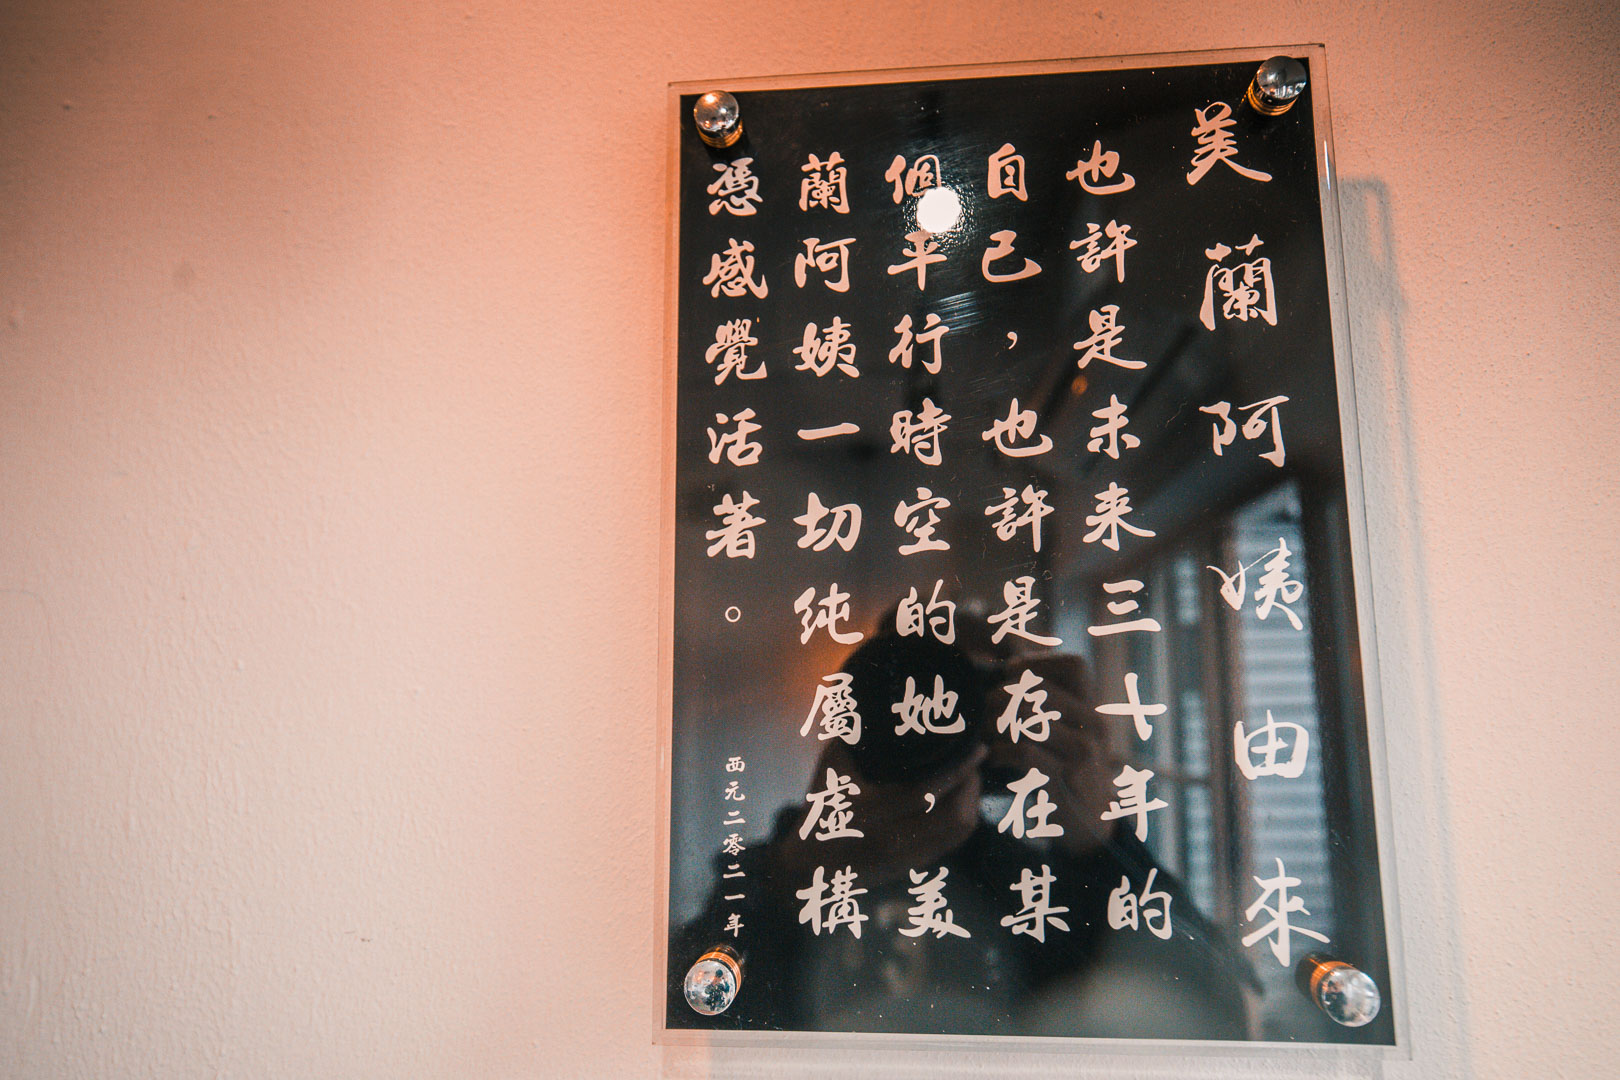 美蘭阿姨由來
也許是未来三十年的
自己，也許是存在某
個平行時空的她，美
蘭阿姨一切純屬虛構
憑感覺活著。
西元二零二一年